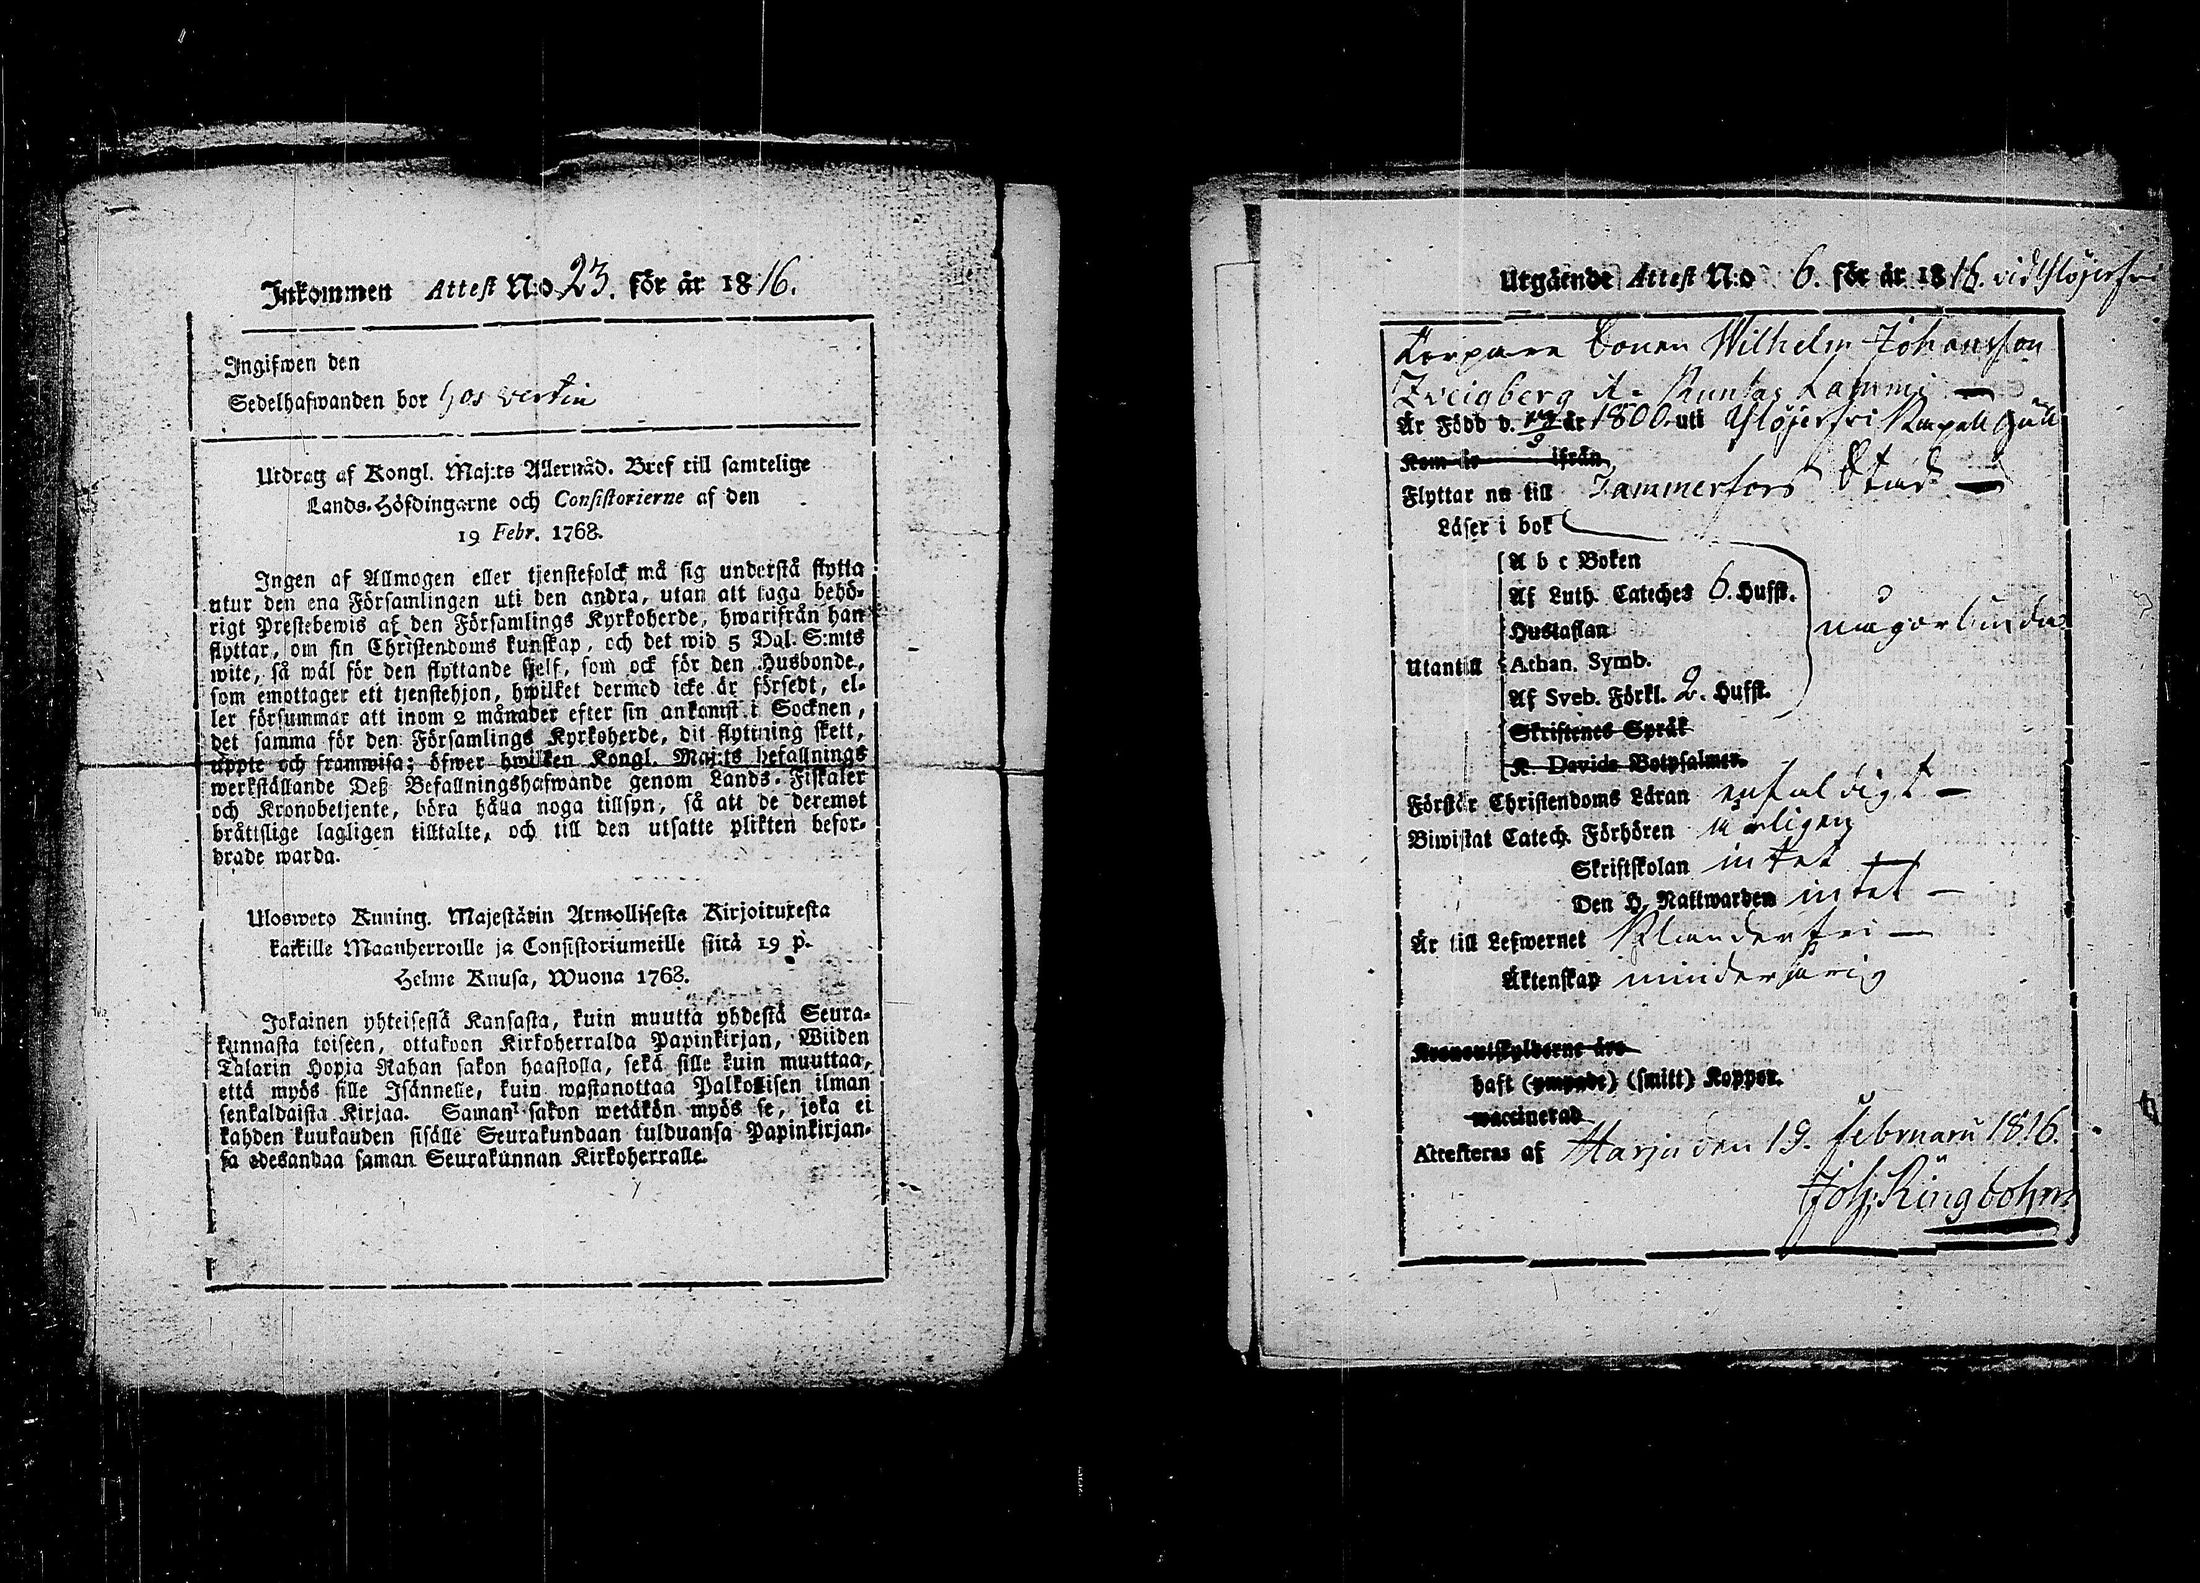 Inkommen Attest N:o 23. för år 1816.
Ingifwen den
Sedelhafwanden bor hos vertin
Utdrag af Kongl. Maj:ts Allernåd. Bref till samtelige
Lands-Höfdingarne och Consistorierne af den
19 Febr. 1768.
Ingen af Allmogen eller tjenstefolck må sig understå flytta
utur den ena Församlingen uti den andra, utan att taga behö-
rigt Prestebewis af den Församlings Kyrkoherde, hwarifrån han
flyttar, om sin Christendoms kunskap, och det wid 5 Dal. S:mts
wite, så wäl för den flyttande sjelf, som ock för den Husbonde,
som emottager ett tjenstehjon, hwilket dermed icke är försedt, el-
ler försummar att inom 2 månader efter sin ankomst i Socknen,
det samma för den Församlings Kyrkoherde, dit flyttning skett,
uppte och framwisa; öfwer hwilken Kongl. Maj:ts befallnings
werkställande Deß Befallningshafwande genom Lands-Fiskaler
och Kronobetjente, böra hålla noga tillsyn, så att de deremot
bråttslige lagligen tilltalte, och till den utsatte plikten befor-
drade warda.
Ulosweto Kuning. Majestätin Armollisesta Kirjoituxesta
kaikille Maanherroille ja Consistoriumeille siitä 19 p.
Helme Kuusa, Wuona 1768.
Jokainen yhteisestä Kansasta, kuin muutta yhdestä Seura-
kunnasta toiseen, ottakoon Kirkoherralda Papinkirjan, Wiiden
Talarin Hopia Rahan sakon haastolla, sekä sille kuin muuttaa,
että myös sille Isännelle, kuin wastanottaa Palkolisen ilman
senkaldaista Kirjaa. Saman sakon wetäkön myös se, joka ei
kahden kuukauden sisälle Seurakundaan tulduansa Papinkirjan-
sa edesandaa saman Seurakunnan Kirkoherralle.
Utgående Attest N:o 6. för år 1816. vid Ylöjerfvi
Sonen Wilhelm Johansson
Zveigberg
Är Född d. år 1800 uti Ylöjerfvi Kapell
Kom år ifrån
Flyttar nu till Tammerfors Stad
Läser i bok
A b c Boken
Af Luth. Cateches 6. Hufst.
Hustaflan
någorlunda
Utantill Athan. Symb.
Af Sveb. Förkl. 2. Hufst.
Skriftenes Språk
K. Davids Botpsalmer.
Förstår Christendoms Läran enfaldigt
Biwistat Catech. Förhören årligen
Skriftskolan intet
Den H. Nattwarden intet
Är till Lefwernet Klanderfri
Äktenskap minderårig
Kronoutskylderne äro
haft (ympade) (smitt) Koppor.
waccinerad
Attesteras af Harju den 19. Februarii 1816.
Joh. Ringbohm